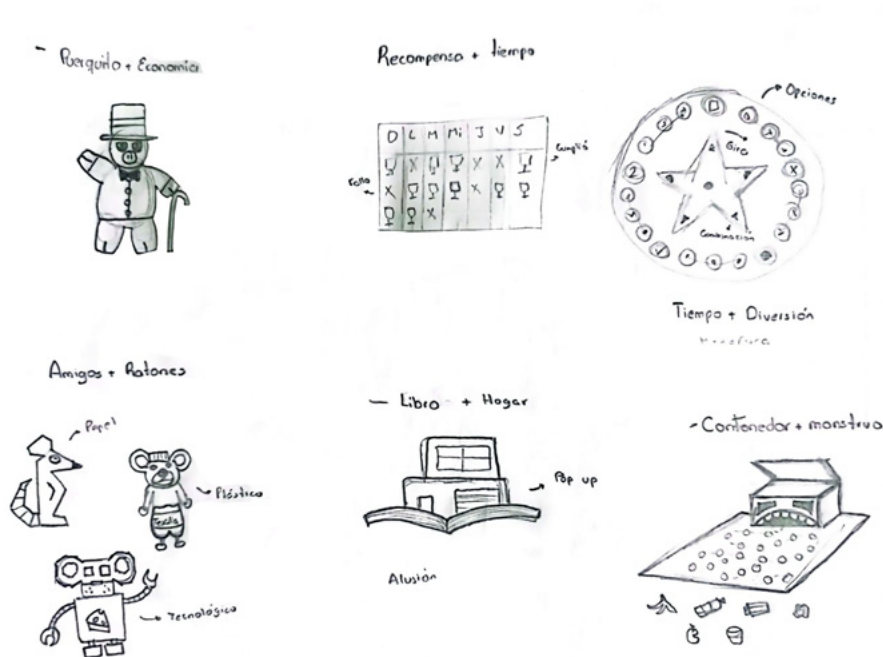 - Puerquito + Economía
Recompensa + tiempo
D L M Mi J V S
Cumplió
Falla
Opciones
Gira
Combinación
2
Tiempo + Diversión
Amigos + Ratones
Papel
Plástico
Textil
Tecnológico
- Libro + Hogar
Pop up
Alusión
- Contenedor + monstruo